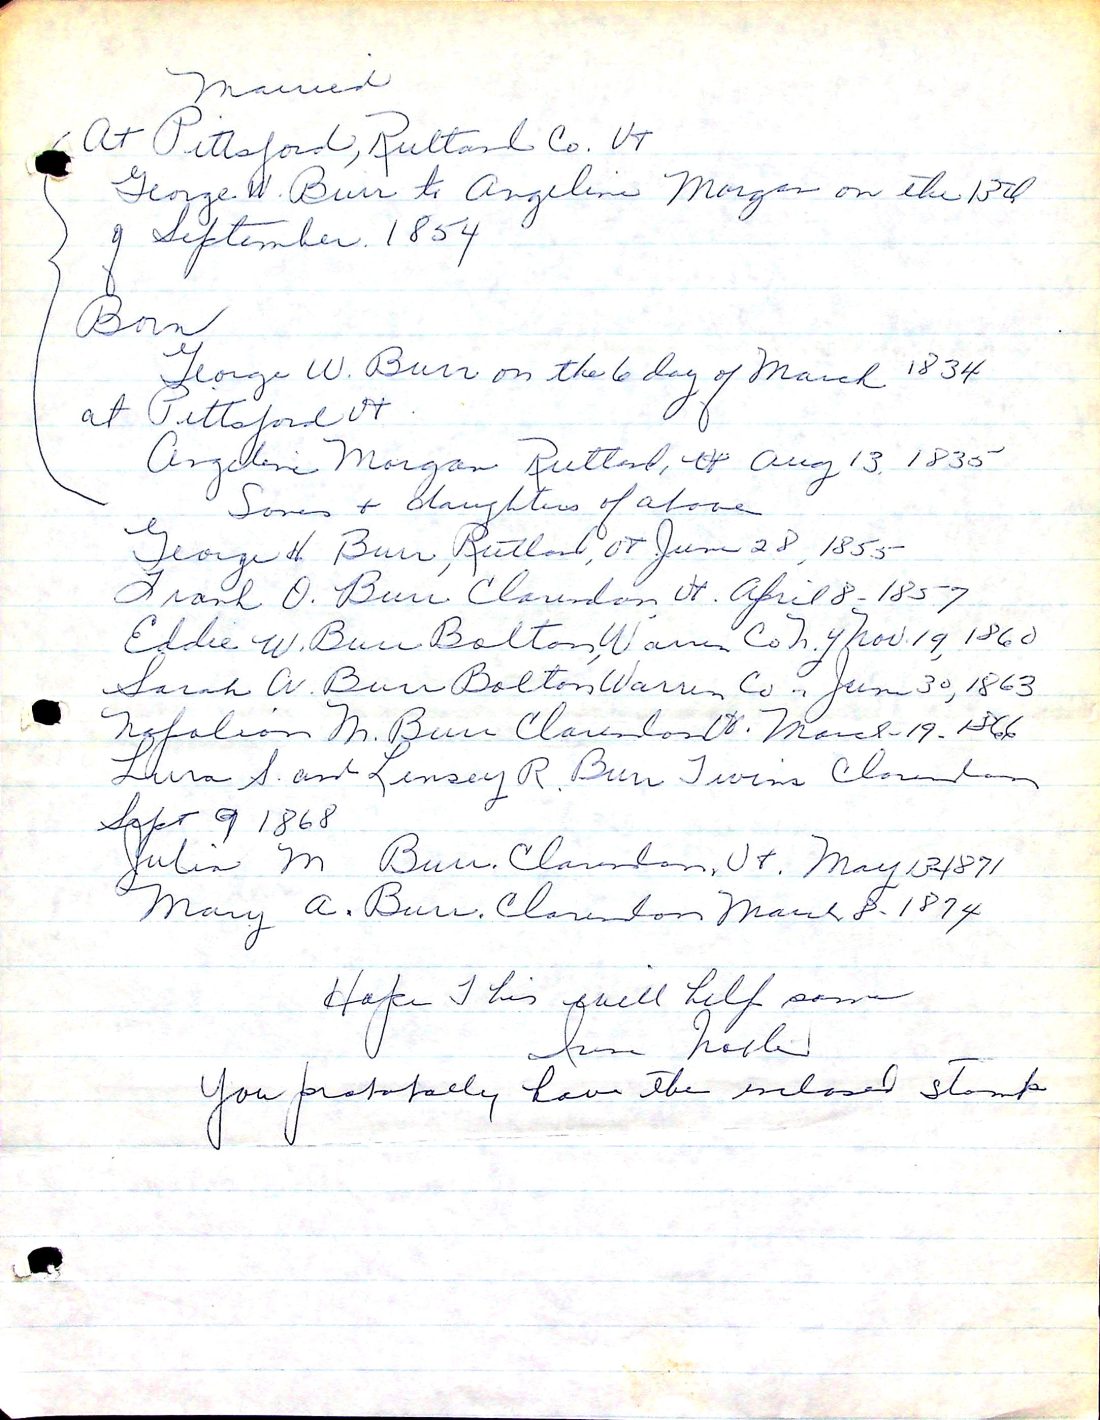 Married
At Pittsford, Rutland Co. Vt
George W. Burr to Angeline Morgan on the 13th
of September. 1854
Born
George W. Burr on the 6 day of March 1834
at Pittsford Vt.
Angeline Morgan Rutland, Vt Aug 13. 1835
Sones + daughters of above
George H Burr, Rutland, Vt June 28, 1855
Frank O. Burr Clarendon Vt. April 8-1857
Eddie W. Burr Bolton, Warren Co N.Y Nov. 19, 1860
Sarah A. Burr Bolton Warren Co " June 30, 1863
Napolion M. Burr Clarendon Vt. March-19-1866
Lura S. and Linsey R. Burr Twins Clarendon
Sept 9 1868
Julia M Burr. Clarendon, Vt. May 1871
Mary A. Burr. Clarendon March 8-1874
Hope This will help some
You probabally have the enclosed stamp